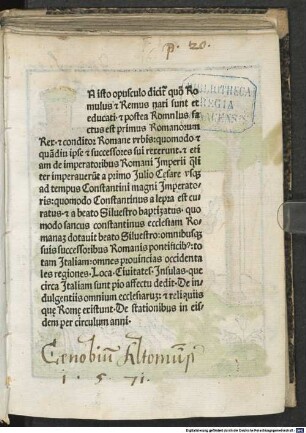 p. 20.
BIBLIOTHECA
REGIA
MONACENSIS
N isto opusculo dicit̃ quõ Ro
mulus & Remus nati sunt et
educati. & postea Romulus fa
ctus est primus Romanorum
Rex. & conditor Romane vrbis: quomodo &
quãdiu ipse & successores sui rexerunt. & eti
am de imperatoribus Romani Imperii q̃li
ter imperauerũt a primo Julio Cesare vsq̃
ad tempus Constantini magni Imperato
ris: quomodo Constantinus a lepra est cu
ratus. & a beato Siluestro baptizatus. quo
modo sanctus constantinus ecclesiam Ro
manaȝ dotauit beato Siluestro: omnibusq̃
suis successoribus Romanis pontificibꝰ: to
tam Italiam: omnes prouincias occidenta
les regiones. Loca. Ciuitates. Insulas. que
circa Italiam sunt pio affectu dedit. De in
dulgentiis omnium ecclesiaruȝ: & reliquiis
que Rome existunt. De stationibus in eis
dem per circulum anni.
Cenobium Altomünst
1. 5. 71.